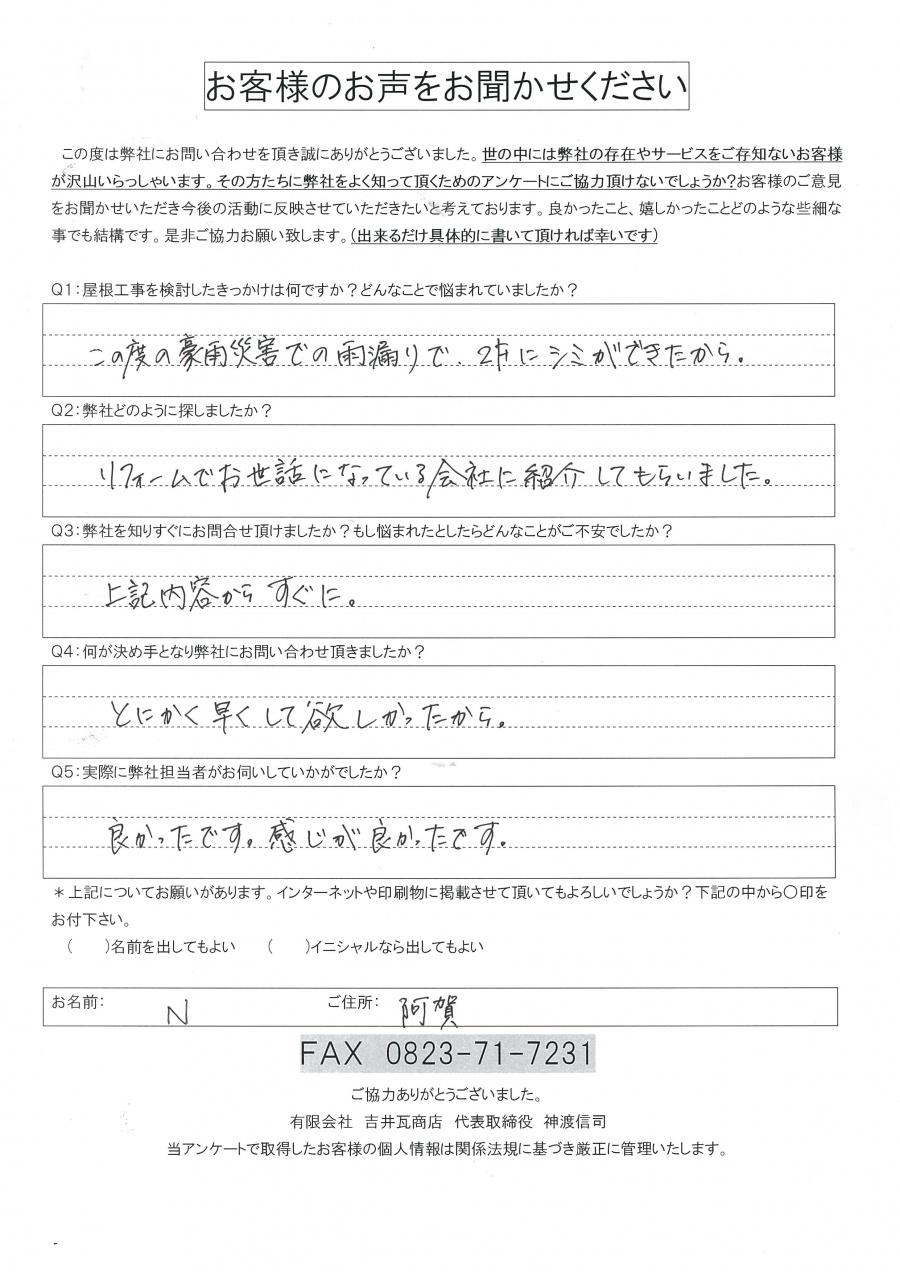 お客様のお声をお聞かせください
この度は弊社にお問い合わせを頂き誠にありがとうございました。世の中には弊社の存在やサービスをご存知ないお客様
が沢山いらっしゃいます。その方たちに弊社をよく知って頂くためのアンケートにご協力頂けないでしょうか?お客様のご意見
をお聞かせいただき今後の活動に反映させていただきたいと考えております。良かったこと、嬉しかったことどのような些細な
事でも結構です。是非ご協力お願い致します。(出来るだけ具体的に書いて頂ければ幸いです)
Q1:屋根工事を検討したきっかけは何ですか?どんなことで悩まれていましたか?
この度の豪雨災害での雨漏りで、2Fにシミができたから。
Q2:弊社どのように探しましたか?
リフォームでお世話になっている会社に紹介してもらいました。
Q3:弊社を知りすぐにお問合せ頂けましたか?もし悩まれたとしたらどんなことがご不安でしたか?
上記内容からすぐに。
Q4:何が決め手となり弊社にお問い合わせ頂きましたか?
とにかく早くして欲しかったから。
Q5:実際に弊社担当者がお伺いしていかがでしたか?
良かったです。感じが良かったです。
*上記についてお願いがあります。インターネットや印刷物に掲載させて頂いてもよろしいでしょうか?下記の中から〇印を
お付下さい。
( )名前を出してもよい ( )イニシャルなら出してもよい
お名前: N ご住所: 阿賀
FAX 0823-71-7231
ご協力ありがとうございました。
有限会社 吉井瓦商店 代表取締役 神渡信司
当アンケートで取得したお客様の個人情報は関係法規に基づき厳正に管理いたします。